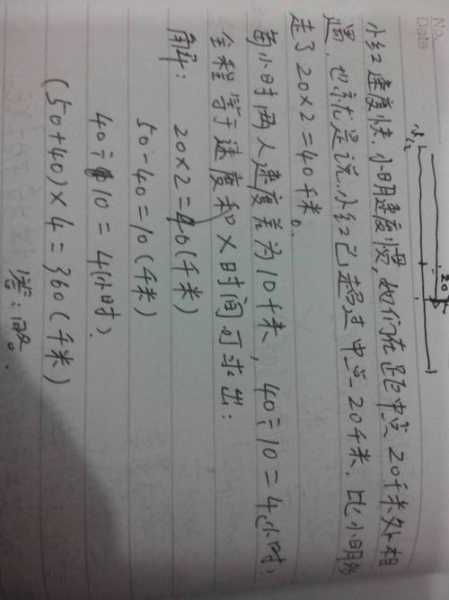 No.
Date
小红
20
小红速度快,小明速度慢,她们在距中点20千米外相
遇,也就是说小红已超过中点20千米,比小明多
走了20×2=40千米。
每小时两人速度差为10千米,40÷10=4小时,
全程等于速度和×时间可求出:
解: 20×2=40(千米)
50-40=10(千米)
40÷10=4(小时)
(50+40)×4=360(千米)
答:略。